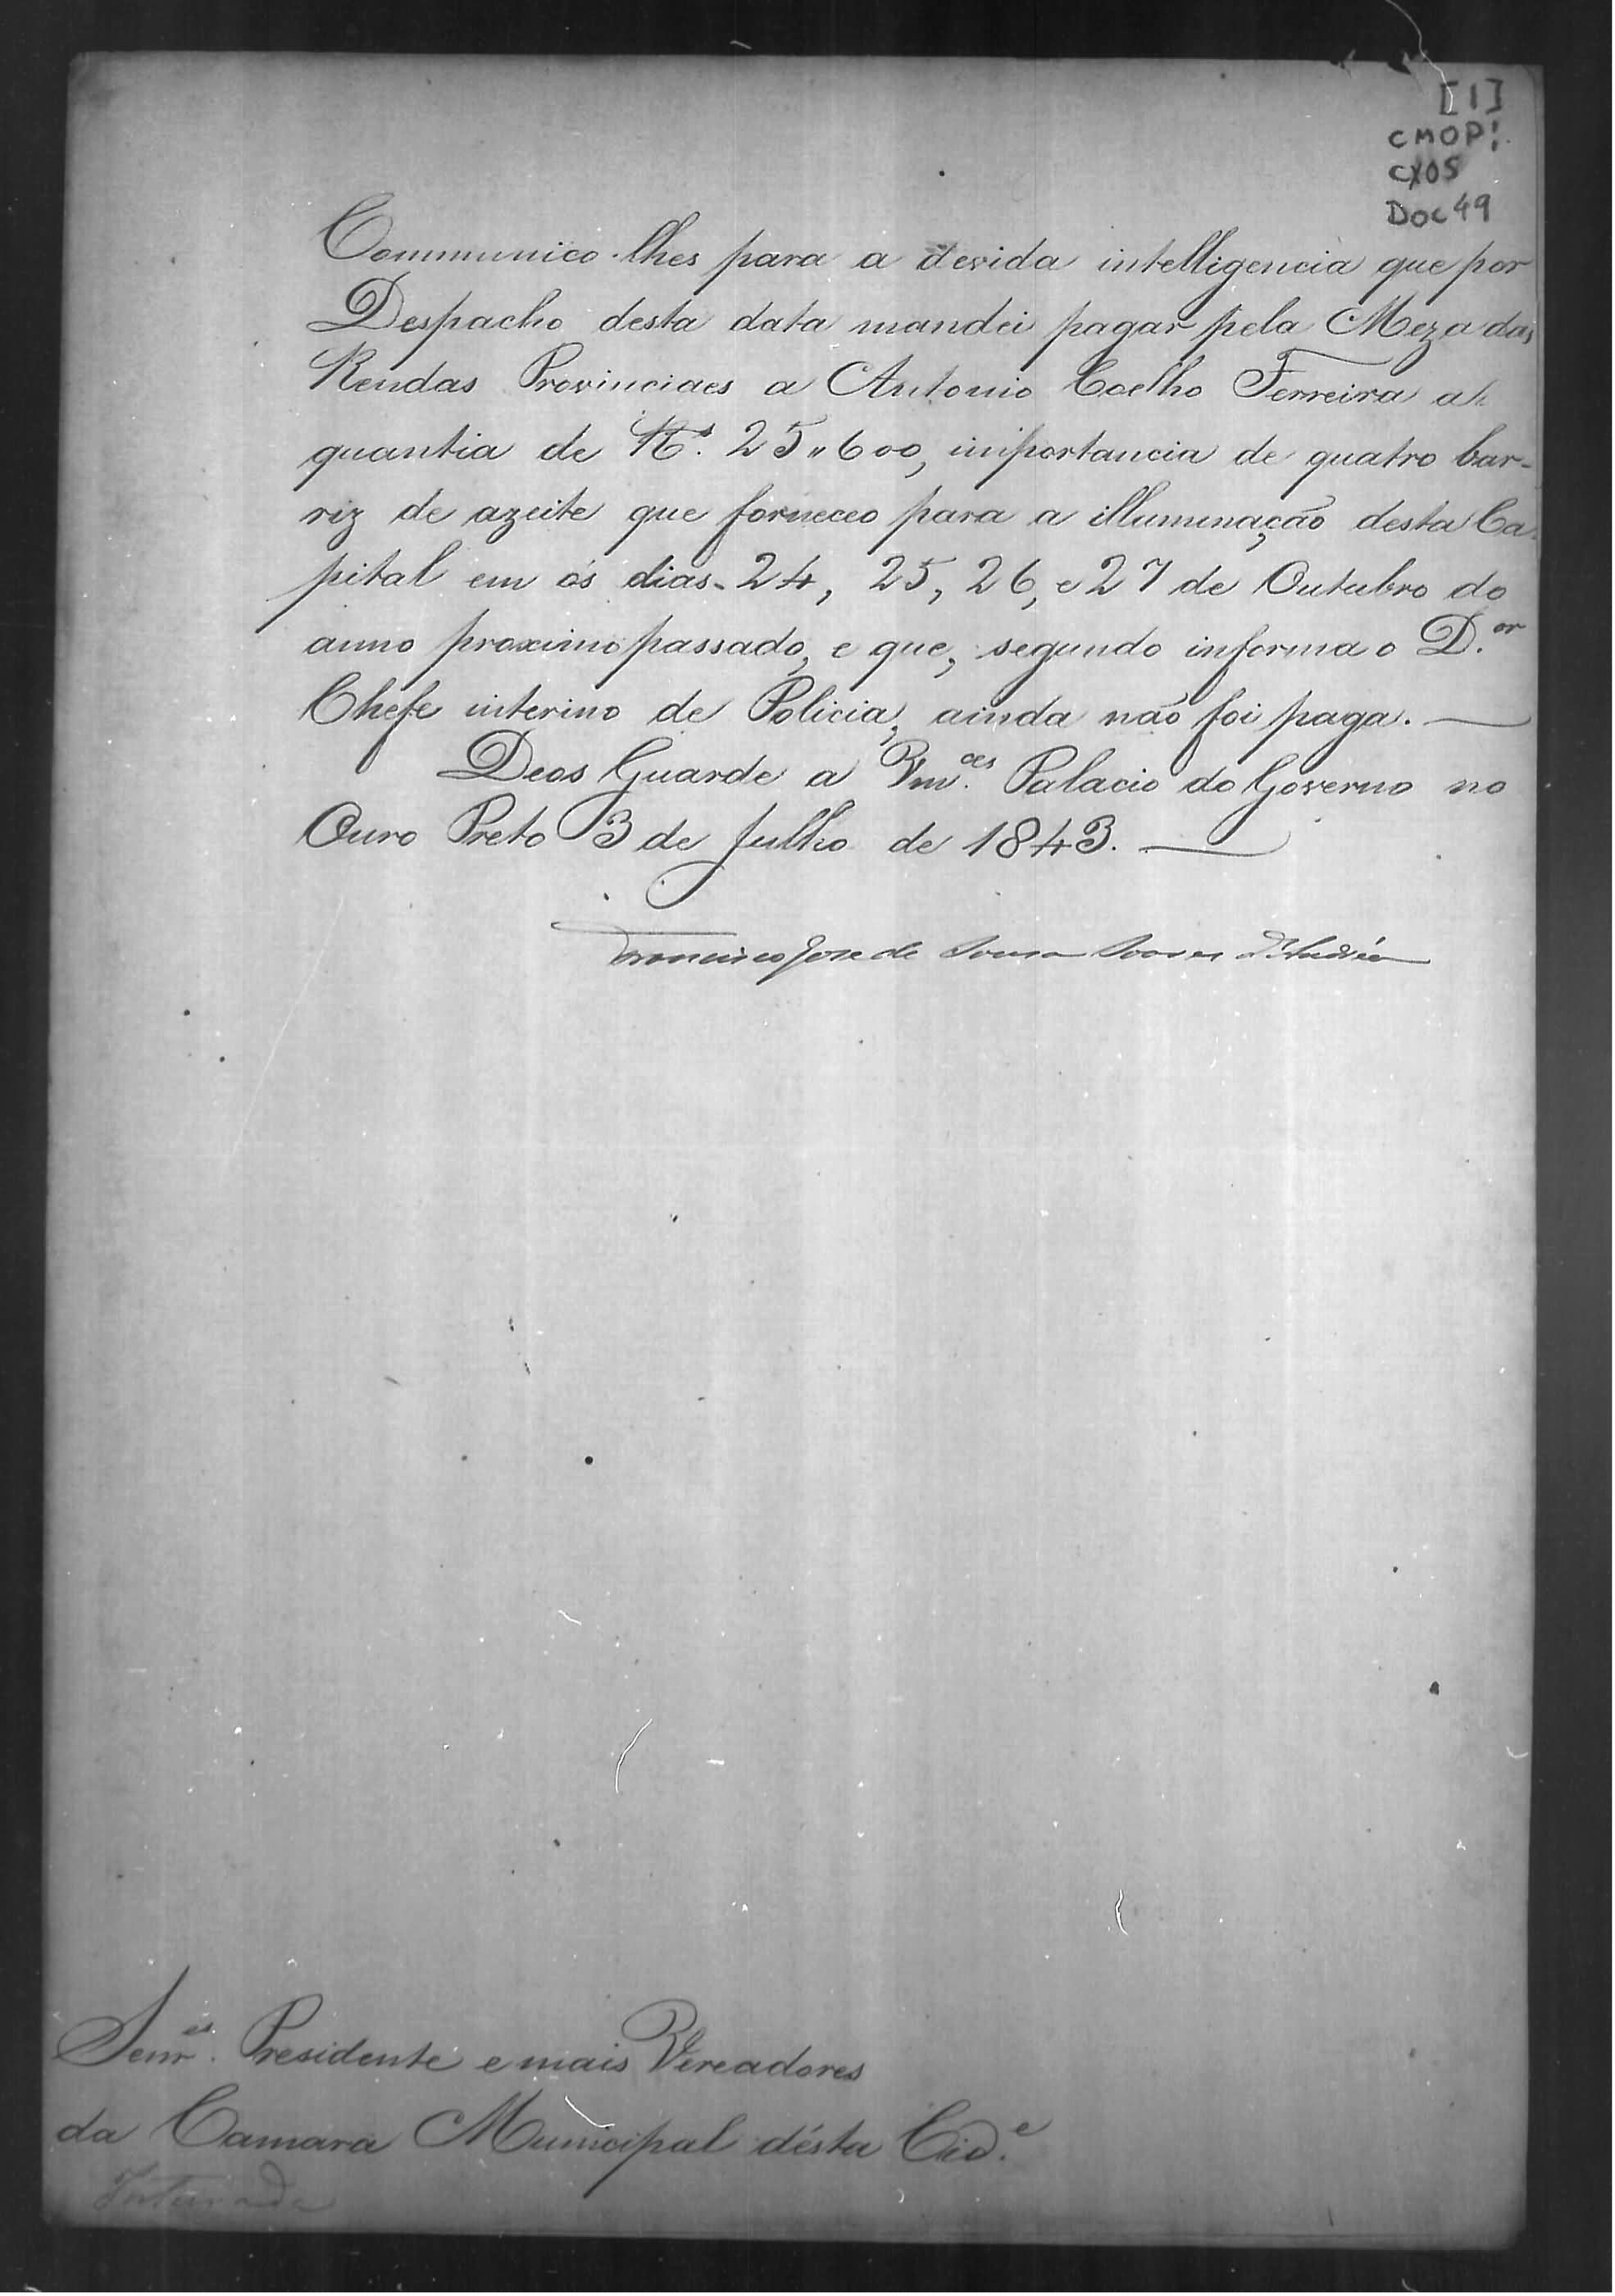 [1]
CMOP:
CX05
Doc 49
Communico-lhes para a devida intelligencia que por
Despacho desta data mandei pagar pela Meza das
Rendas Provinciaes a Antonio Coelho Ferreira a
quantia de Rs. 25"600, importancia de quatro bar-
riz de azeite que forneceo para a illuminação desta Ca-
pital em os dias 24, 25, 26, e 27 de Outubro do
anno proximo passado, e que, segundo informa o D.or
Chefe interino de Policia, ainda não foi paga.
Deos Guarde a Vm.ces Palacio do Governo no
Ouro Preto 3 de Julho de 1843.
Francisco Jose de Sousa Soares d'Andréa
Senr.es Presidente e mais Vereadores
da Camara Municipal désta Cid.e
Inteirada